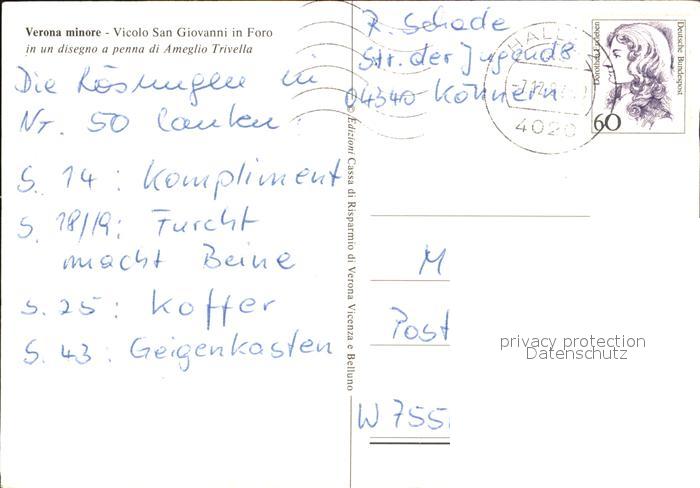 Verona minore - Vicolo San Giovanni in Foro
in un disegno a penna di Ameglio Trivella
Die Lösungen in
Nr. 50 lauten:
S. 14: Kompliment
S. 18/19: Furcht
macht Beine
S. 25: Koffer
S. 43: Geigenkasten
Edizioni Cassa di Risparmio di Verona Vicenza e Belluno
R. Schade
Str. der Jugend 8
04340 Könnern
HALLE
4020
Deutsche Bundespost
60
M
Post
W 755
privacy protection
Datenschutz